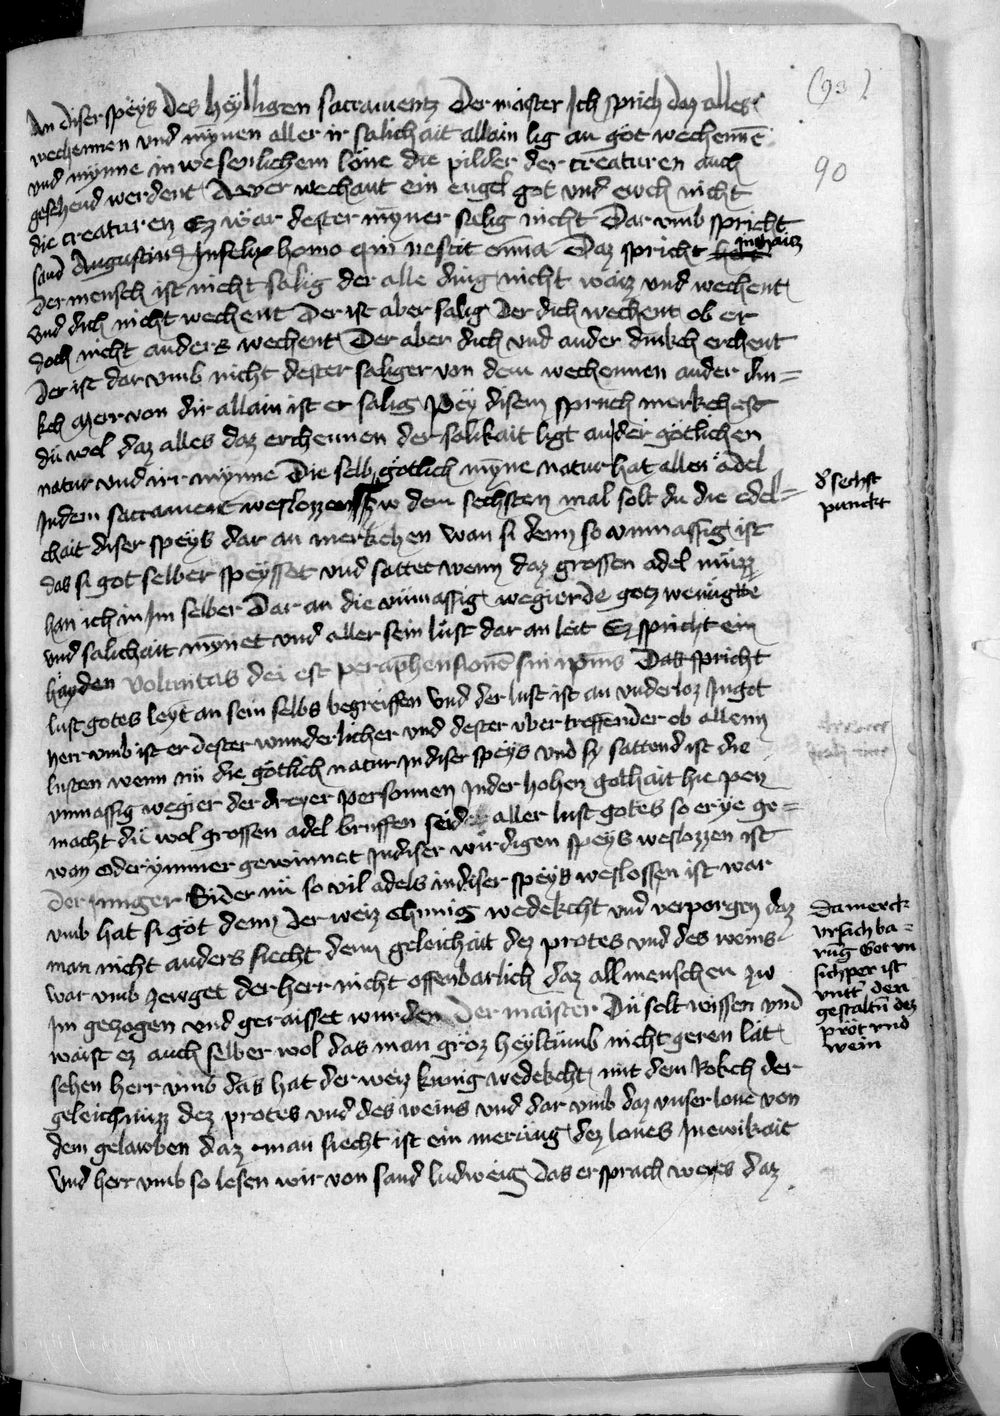 (93)
90
An diser speys des heylligen sacramentz Der maister Ich sprich daz alles
wechennen vnd mynnen aller ir salichait allain lig an got wechennē
vnd mynne in wesenlichem lone die pilder der creaturen auch
gesehend werdent Awer wechant ein engel got vnd euch nicht
die creaturen Ez wär dester mynner salig nicht Dar vmb spricht
sand Augustinus Infelix homo qui nescit omnia Daz spricht
Der mensch ist nicht salig der alle ding nicht waiz vnd wechent
vnd dich nicht wechent Der ist aber salig Der dich wechent ob er
doch nicht anders wechent Der aber dich vnd ander dinkch erchent
Der ist dar vmb nicht dester saliger von dem wechennen ander din=
kch Herr von dir allain ist er salig Pey disem spruch merkchest
du wol daz alles daz erchennen der salikait ligt an der gotlichen
natur vnd irr mynne Die selb gotlich myne natur hat aller adel
In dem sacrament weslozzen zw dem sechsten mal solt du die edel=
chait diser speys dar an merkchen wan si denn so vnmassig ist
das si got selber speysset vnd sattet wenn daz grossen adel muzz
han ich in Im selber Dar an die vnmassig wegierde gotz wenugtte
vnd salichait mynnet vnd aller sein lust dar an leit Ez spricht ein
hayden Voluntas dei est per aphensionē sui ipius Das spricht
lust gotes leyt an sein selbs begreiffen vnd der lust ist an vnderloz In got
herr vmb ist er dester wunderlicher vnd dester vber treffender ob allenn
lusten wenn nu die gotlich natur In diser speys vnd sy sattend ist die
vnmassig wegier der dreyer personnen In der hohen gothait hie pey
macht du wol grossen adel bruffen seid aller lust gotes so er ye ge=
won oder ymmer gewinnet In diser wirdigen speys weslozzen ist
Der Iunger Sider nu so vil adels in diser speys weslossen ist war
vmb hat si got denn Der weiz chunig wedekcht vnd verporgen daz
man nicht anders siecht denn geleichait dez protes vnd des weins
war vmb zewget der herr nicht offenbarlich daz all menschen zw
Im gezogen vnd geraisset wurden Der maister Du solt wissen vnd
waist ez auch selber wol das man groz heyltumb nicht geren lat
sehen herr vmb das hat der weiz kunig wedekcht mit dem Rokch der
geleichnuzz dez protes vnd des weins vnd dar vmb daz vnser lone von
dem gelawben daz man siecht ist ein merung dez lones In ewikait
Vnd herr vmb so lesen wir von sand ludweig Das er sprach wer es daz
d' sechst
punckt
Da merck
vrsich ba=
rung Got vn
sichper ist
vntt den
gestaltn dez
prot vnd
wein